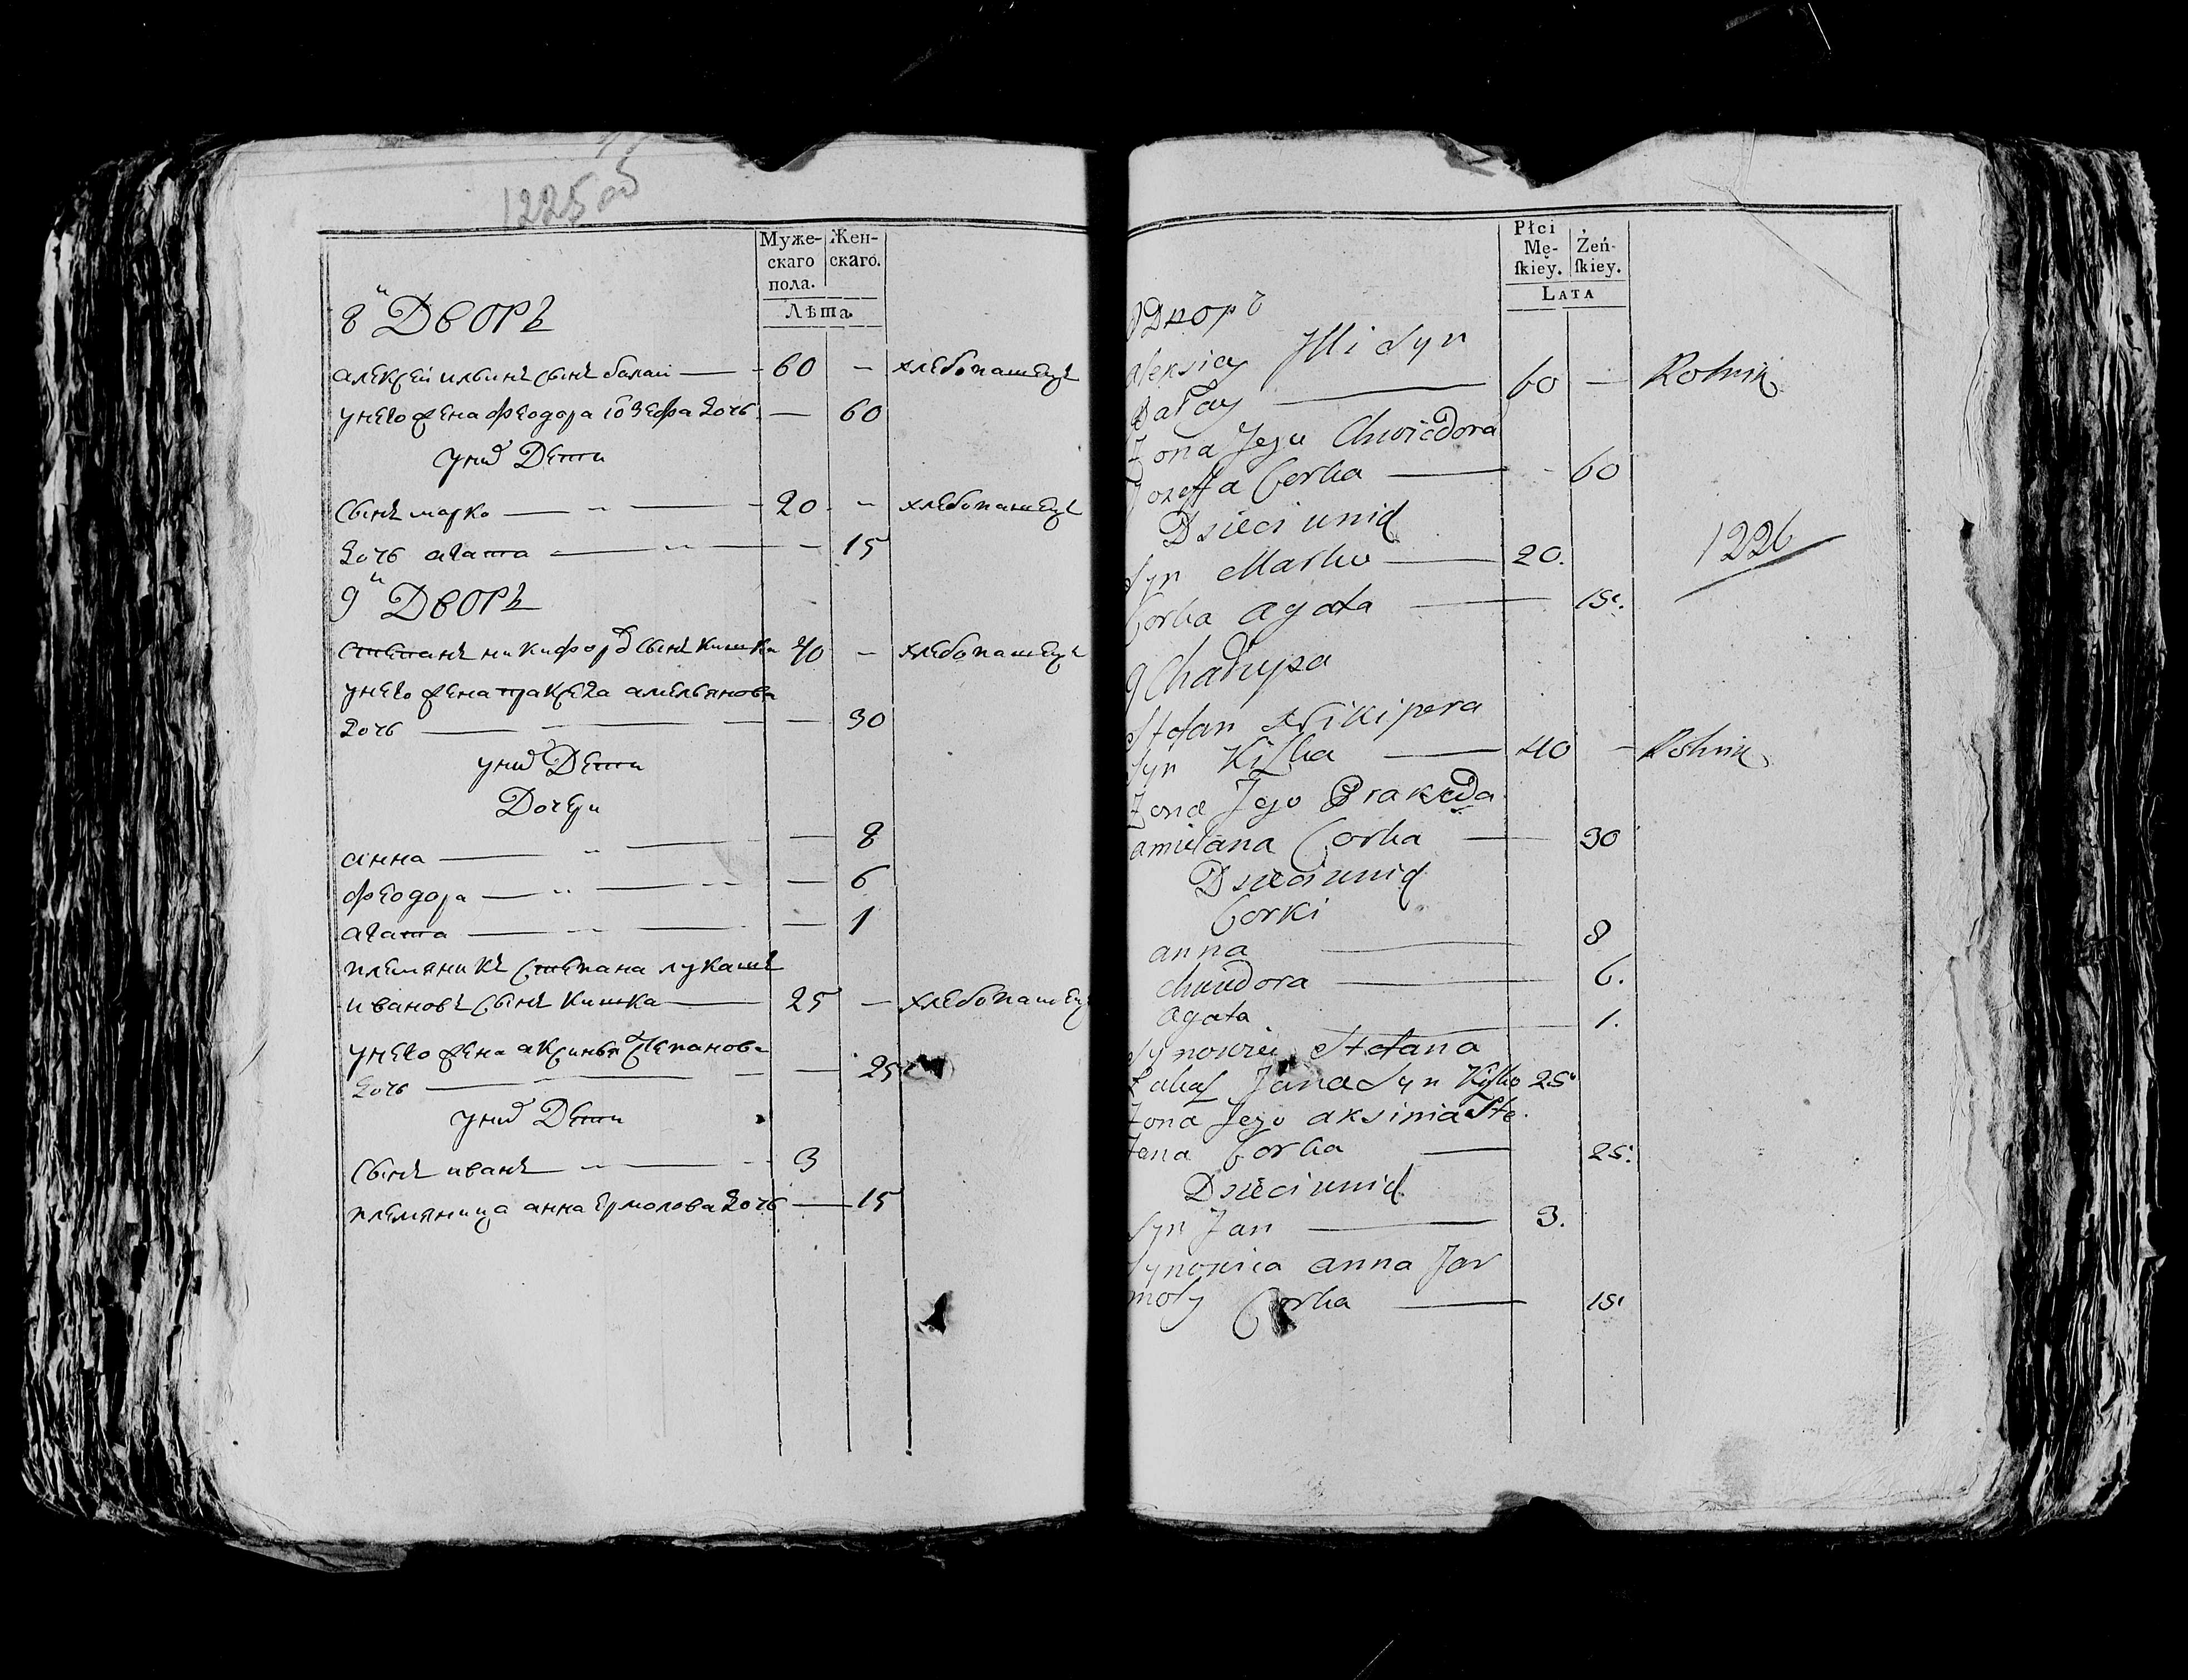 1225 об
Муже-
скаго
пола.
Жен-
скаго.
Лѣта.
8й Дворъ
алексей ильинъ сынъ балай — 60 — хлебопашецъ
у него жена феодора іозефа дочь — 60
у них дети
сынъ марко — 20 — хлебопашецъ
дочь агата — 15
9й Дворъ
степанъ никифоров сынъ кишка 40 — хлебопашецъ
у него жена пракседа амельянова
дочь — 30
у них дети
Дочери
анна — 8
феодора — 6
агата — 1
племяникъ степана лукашъ
ивановъ сынъ кишка — 25 — хлебопашец
у него жена аксинья степанова
дочь — 25
у них дети
сынъ иванъ — 3
племяница анна ермолова дочь — 15
Płci
Mę-
ſkiey.
Żeń-
ſkiey.
Lata
8 Дворъ
Aleksiey Jlli Syn
Bałay — 60 — Rolnik
Zona Jego Chwiedora
Jozeffa Corka — 60
Dzieci unich
Syn Marko — 20.
1226
Corka Agata — 15.
9 Chałupa
Stefan Nikipera
Syn Kiſzka — 40 — Rolnik
Zona Jego Prakseda
amielana Corka — 30
Dzieci unich
Corki
anna — 8
chwiedora — 6.
agata — 1.
Synowiec Stefana
Łukaſz Jana Syn Kiſzka 25
Zona Jego aksinia Ste
fana Corka — 25.
Dzieci unich
Syn Jan — 3.
Synowica anna Jar
moły Corka — 15